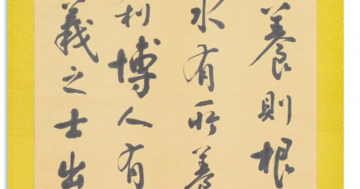 養則根
水有所養
利博人有
義之士出